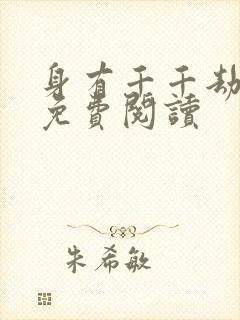 身有千千劫
免費閱讀
朱希敏